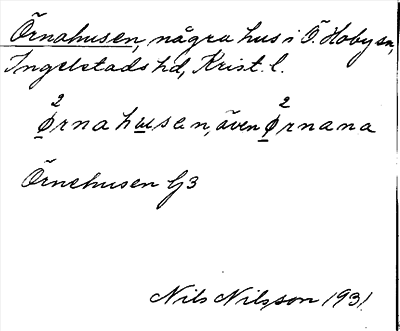 Örnahusen, några hus i Ö. Hoby sn,
Ingelstads hd, Krist. l.
2 2
Ørnahusen, även Ørnana
Örnehusen G3
Nils Nilsson 1931.